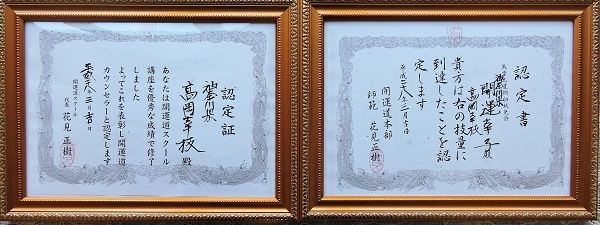 認定証
高岡幸板 殿
あなたは開運道スクール
講座を優秀な成績で修了
しました
よってこれを表彰し開運道
カウンセラーと認定します
開運道スクール
代表 花見正樹
認定書
開運幸
貴方は右の技量に
到達したことを認
定します
平成二十八年三月吉日
開運道本部
師範 花見正樹